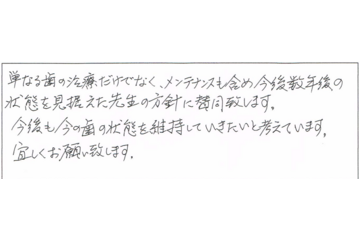 単なる歯の治療だけでなく、メンテナンスも含め今後数年後の
状態を見据えた先生の方針に賛同致します。
今後も今の歯の状態を維持していきたいと考えています。
宜しくお願い致します。